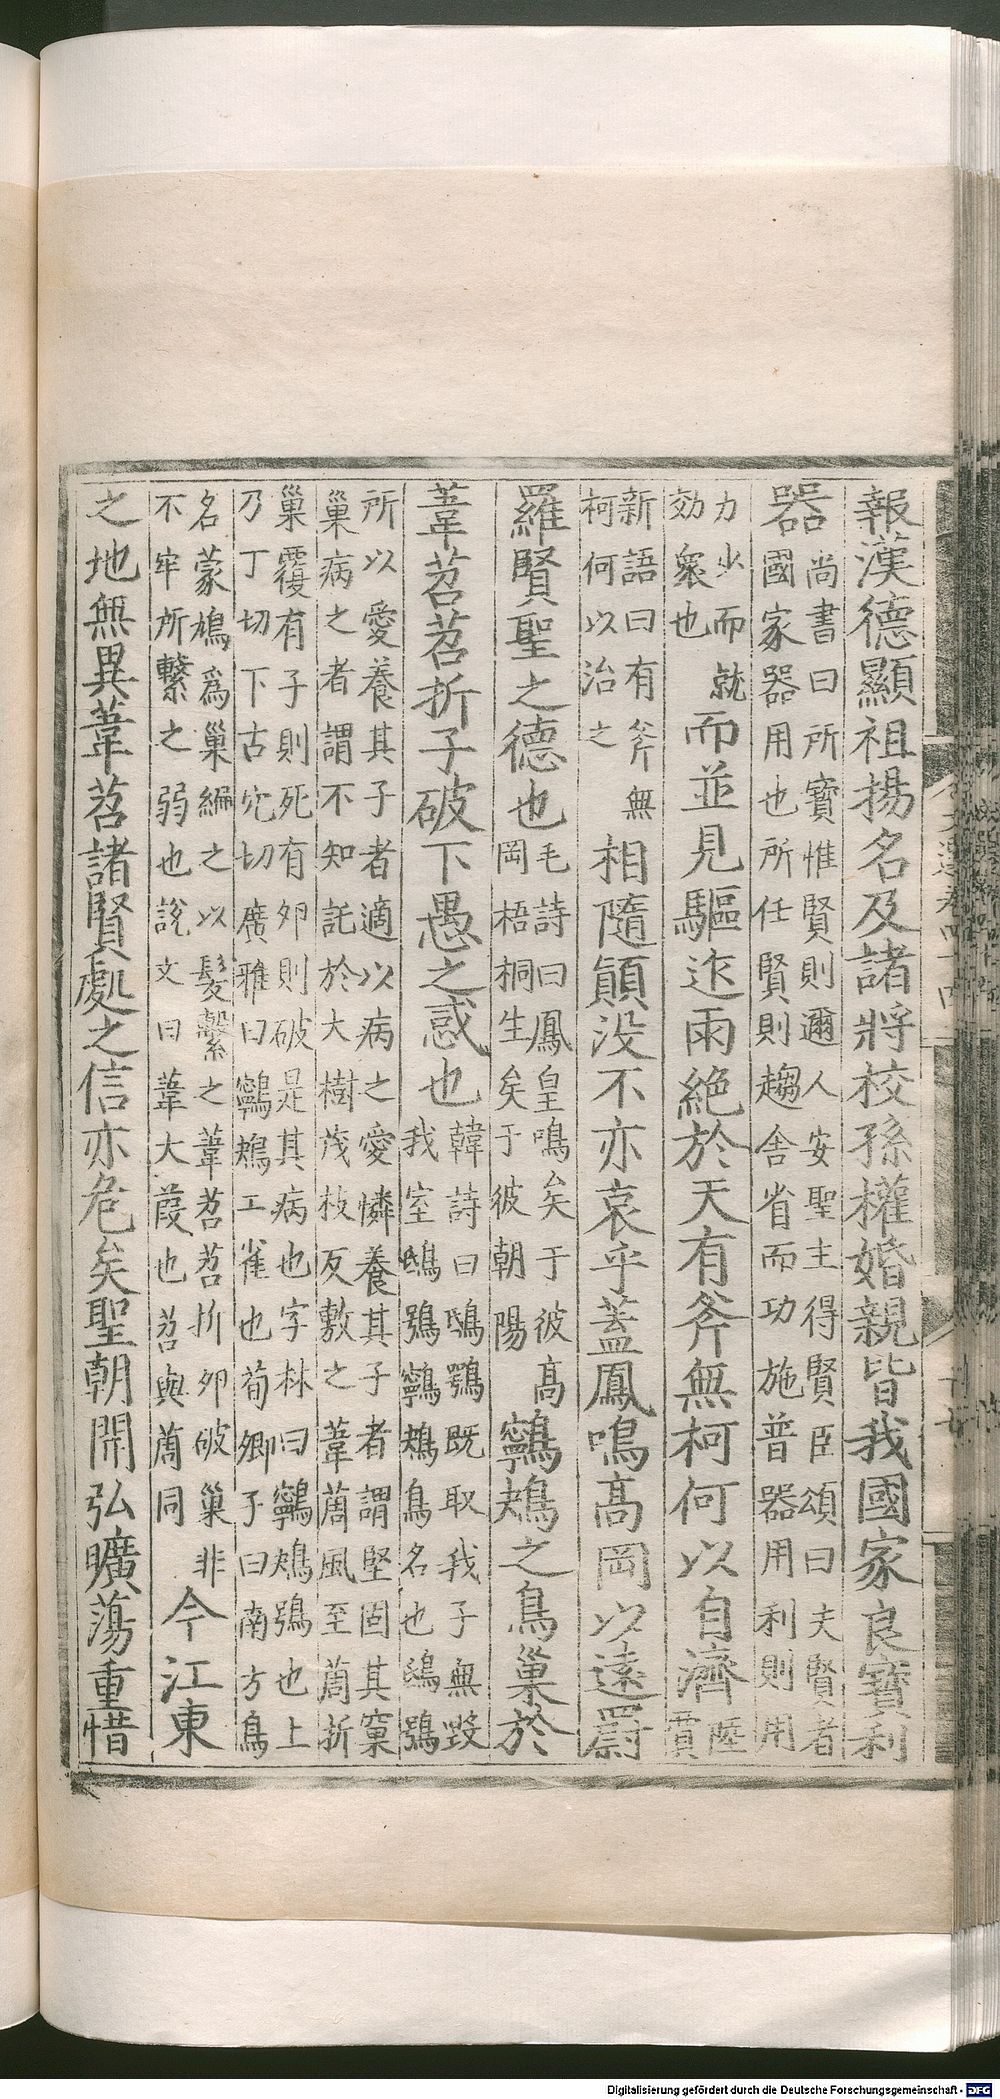 報漢德顯祖揚名及諸將校孫權婚親皆我國家良寶利
器
尚書曰所寶惟賢則邇人安聖主得賢臣頌曰夫賢者
國家器用也所任賢則趨舍省而功施普器用利則用
力少而就
効衆也
而並見驅迮雨絶於天有斧無柯何以自濟
陸
賈
新語曰有斧無
柯何以治之
相隨顚没不亦哀乎蓋鳳鳴高岡以遠罻
羅賢聖之德也
毛詩曰鳳皇鳴矣于彼高
岡梧桐生矣于彼朝陽
鸋鴂之鳥巢於
葦苕苕折子破下愚之惑也
韓詩曰鴟鴞既取我子無毀
我室鴟鴞鸋鴂鳥名也鴟鴞
所以愛養其子者適以病之愛憐養其子者謂堅固其窠
巢病之者謂不知託於大樹茂枝反敷之葦風至折
巢覆有子則死有卵則破是其病也字林曰鸋鴂鴞也上
乃丁切下古穴切廣雅曰鸋鴂工雀也荀卿子曰南方鳥
名蒙鳩爲巢編之以髮繫之葦苕苕折卵破巢非
不牢所繫之弱也說文曰葦大葭也苕與同
今江東
之地無異葦苕諸賢處之信亦危矣聖朝開弘曠蕩重惜
文選卷四十四
Digitalisierung gefördert durch die Deutsche Forschungsgemeinschaft - DFG